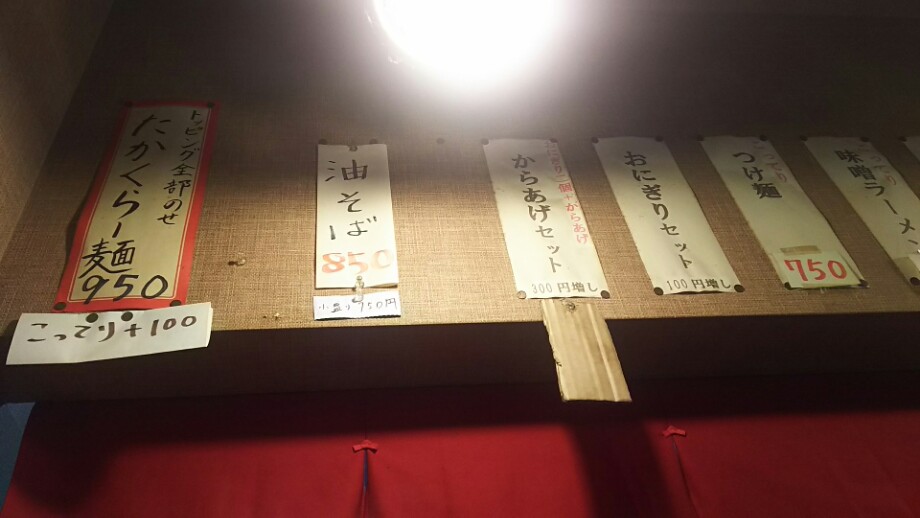 トッピング全部のせ
たかくらー麺
950
こってり+100
油そば
850
小盛り750円
おにぎり一個+からあげ
からあげセット
300円増し
おにぎりセット
100円増し
こってり
つけ麺
750
こってり
味噌ラーメン